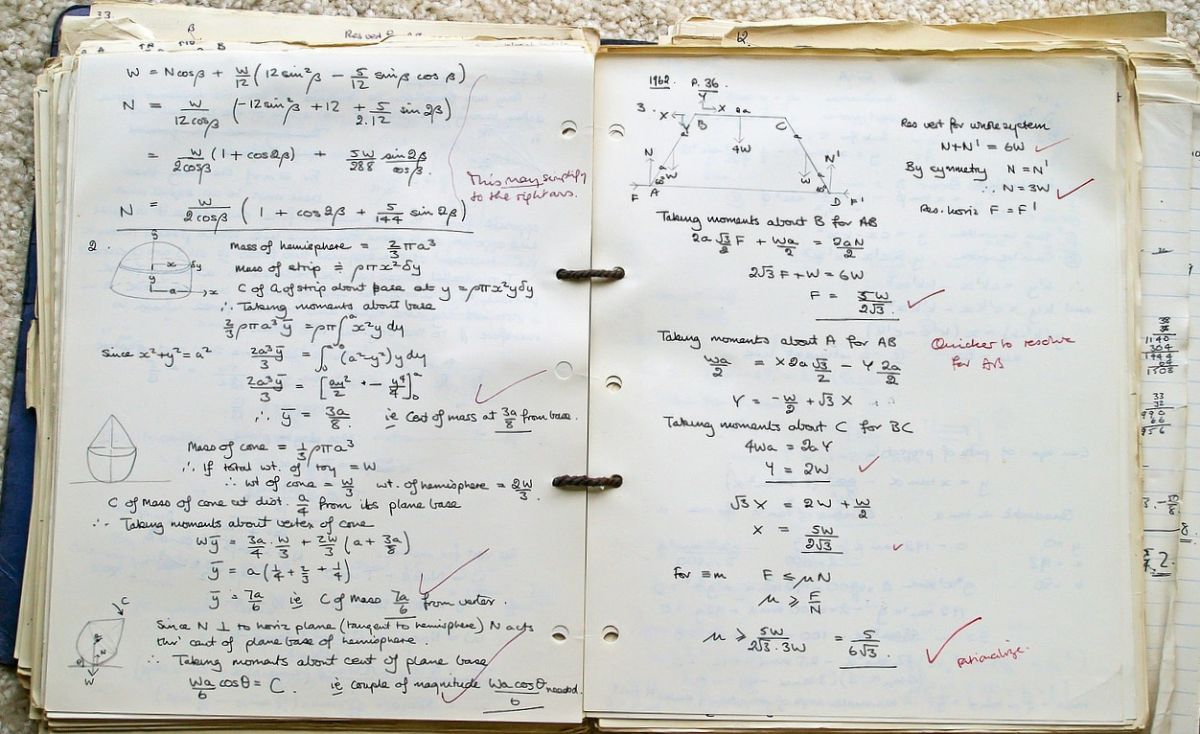 33
β
W = Ncosβ + W/12 (12 sin²β − 5/12 sinβ cos β)
N = W/12cosβ (−12sin²β + 12 + 5/2.12 sin 2β)
= W/2cosβ (1 + cos2β) + 5W/288 sin2β/cosβ.
This may simplify
to the right ans.
N = W/2cosβ (1 + cos 2β + 5/144 sin 2β)
2.
y
x δy
y
a → x
Mass of hemisphere = 2/3 πa³
Mass of strip = ρπx²δy
C of G of strip about base at y = ρπx²yδy
∴ Taking moments about base
2/3 ρπa³ȳ = ρπ∫₀ᵃ x²y dy
Since x²+y² = a² 2a³ȳ/3 = ∫₀ᵃ (a²−y²)y dy
2a³ȳ/3 = [ay²/2 + − y⁴/4]₀ᵃ
∴ ȳ = 3a/8. ie Cent of mass at 3a/8 from base.
Mass of cone = 1/3 ρπa³
∴ If total wt. of toy = W
∴ wt of cone = W/3 wt. of hemisphere = 2W/3.
C of Mass of cone at dist. a/4 from its plane base
∴ Taking moments about vertex of cone
Wȳ = 3a/4 . W/3 + 2W/3 (a + 3a/8)
ȳ = a(1/4 + 2/3 + 1/4)
ȳ = 7a/6 ie C of mass 7a/6 from vertex.
C
W
Since N ⊥ to horiz plane (tangent to hemisphere) N acts
thro' cent of plane base of hemisphere.
∴ Taking moments about cent of plane base
Wa/6 cosθ = C. ie couple of magnitude Wa cosθ/6 needed.
12.
1962. P. 36.
3.
Y
X 2a
X B C
a a
4W
N N'
a W W
60° 60°
F A D F'
Res vert for whole system
N+N' = 6W
By symmetry N = N'
∴ N = 3W
Res. horiz F = F'
Taking moments about B for AB
2a √3/2 F + Wa/2 = 2aN/2
2√3 F + W = 6W
F = 5W/2√3.
Taking moments about A for AB
Quicker to resolve
for AB
Wa/2 = X 2a √3/2 − Y 2a/2
Y = −W/2 + √3 X
Taking moments about C for BC
4Wa = 2a Y
Y = 2W
√3 X = 2W + W/2
X = 5W/2√3
for ≡m F ≤ μN
μ ≥ F/N
μ ≥ 5W/2√3 . 3W = 5/6√3.
rationalize.
38
1140
304
1444
64
1508
33
32
990
66
956